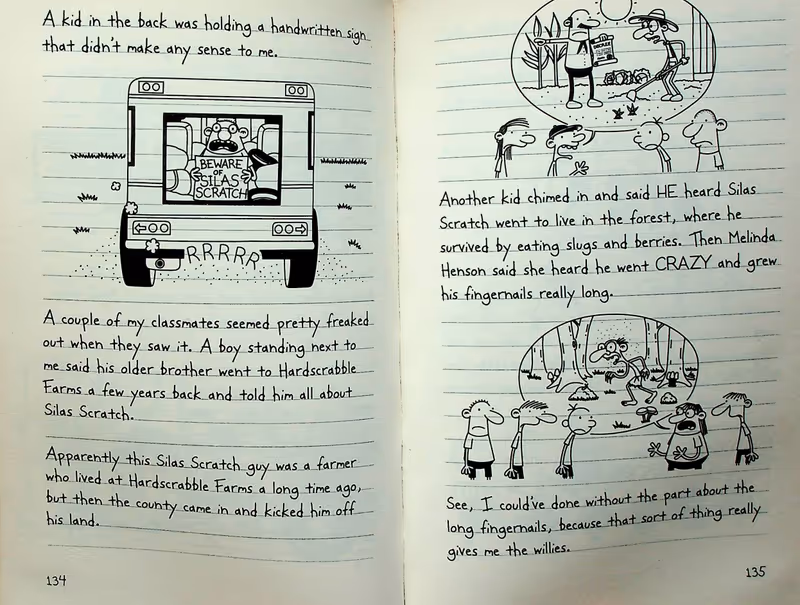 A kid in the back was holding a handwritten sign
that didn't make any sense to me.
BEWARE
OF
SILAS
SCRATCH
RRRRR
A couple of my classmates seemed pretty freaked
out when they saw it. A boy standing next to
me said his older brother went to Hardscrabble
Farms a few years back and told him all about
Silas Scratch.
Apparently this Silas Scratch guy was a farmer
who lived at Hardscrabble Farms a long time ago,
but then the county came in and kicked him off
his land.
134
Another kid chimed in and said HE heard Silas
Scratch went to live in the forest, where he
survived by eating slugs and berries. Then Melinda
Henson said she heard he went CRAZY and grew
his fingernails really long.
See, I could've done without the part about the
long fingernails, because that sort of thing really
gives me the willies.
135